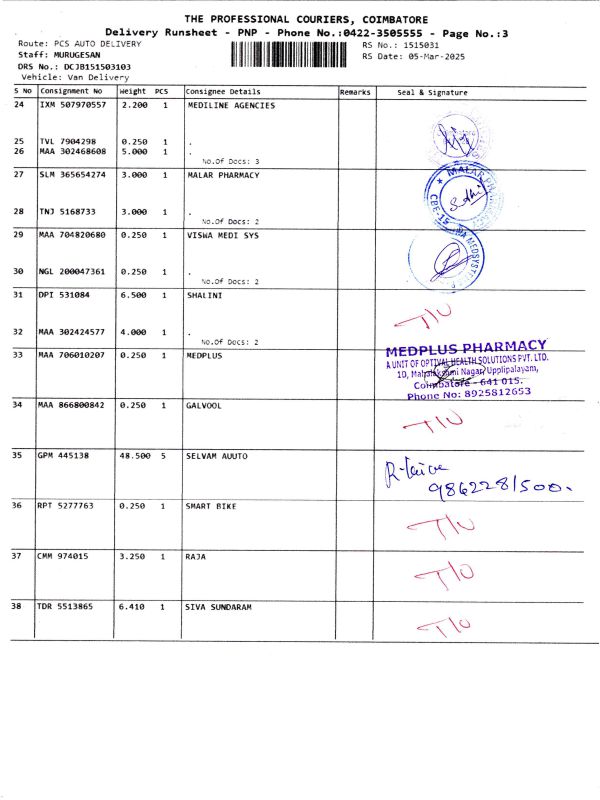 THE PROFESSIONAL COURIERS, COIMBATORE
Delivery Runsheet - PNP - Phone No.:0422-3505555 - Page No.:3
Route: PCS AUTO DELIVERY
Staff: MURUGESAN
DRS No.: DCJB151503103
Vehicle: Van Delivery
RS No.: 1515031
RS Date: 05-Mar-2025
S No Consignment No Weight PCS Consignee Details Remarks Seal & Signature
24 IXM 507970557 2.200 1 MEDILINE AGENCIES
25 TVL 7904298 0.250 1 .
26 MAA 302468608 5.000 1 .
No.Of Docs: 3
27 SLM 365654274 3.000 1 MALAR PHARMACY
MALAR PH
CBE-15
28 TNJ 5168733 3.000 1 .
No.Of Docs: 2
29 MAA 704820680 0.250 1 VISWA MEDI SYS
MEDSYST
30 NGL 200047361 0.250 1 .
No.Of Docs: 2
31 DPI 531084 6.500 1 SHALINI
T/U
32 MAA 302424577 4.000 1 .
No.Of Docs: 2
33 MAA 706010207 0.250 1 MEDPLUS
MEDPLUS PHARMACY
A UNIT OF OPTIVAL HEALTH SOLUTIONS PVT. LTD.
10, Mahalakshmi Nagar, Upplipalayam,
Coimbatore - 641 015.
Phone No: 8925812653
34 MAA 866800842 0.250 1 GALVOOL
T/U
35 GPM 445138 48.500 5 SELVAM AUUTO
9862281500.
36 RPT 5277763 0.250 1 SMART BIKE
T/U
37 CMM 974015 3.250 1 RAJA
T/U
38 TDR 5513865 6.410 1 SIVA SUNDARAM
T/U